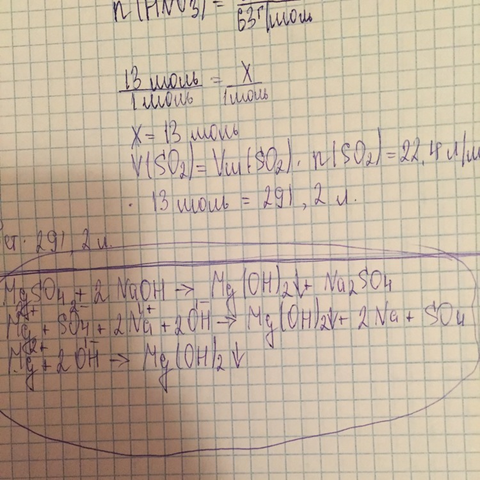 n(HNO₃) = ——— 63 г/моль
13 моль / 1 моль = X / 1 моль
X = 13 моль
V(SO₂) = Vm(SO₂) · n(SO₂) = 22,4 л/м
· 13 моль = 291,2 л.
ет: 291,2 л.
MgSO₄ + 2 NaOH → Mg(OH)₂↓ + Na₂SO₄
Mg²⁺ + SO₄²⁻ + 2 Na⁺ + 2OH⁻ → Mg(OH)₂↓ + 2 Na + SO₄
Mg²⁺ + 2 OH⁻ → Mg(OH)₂↓